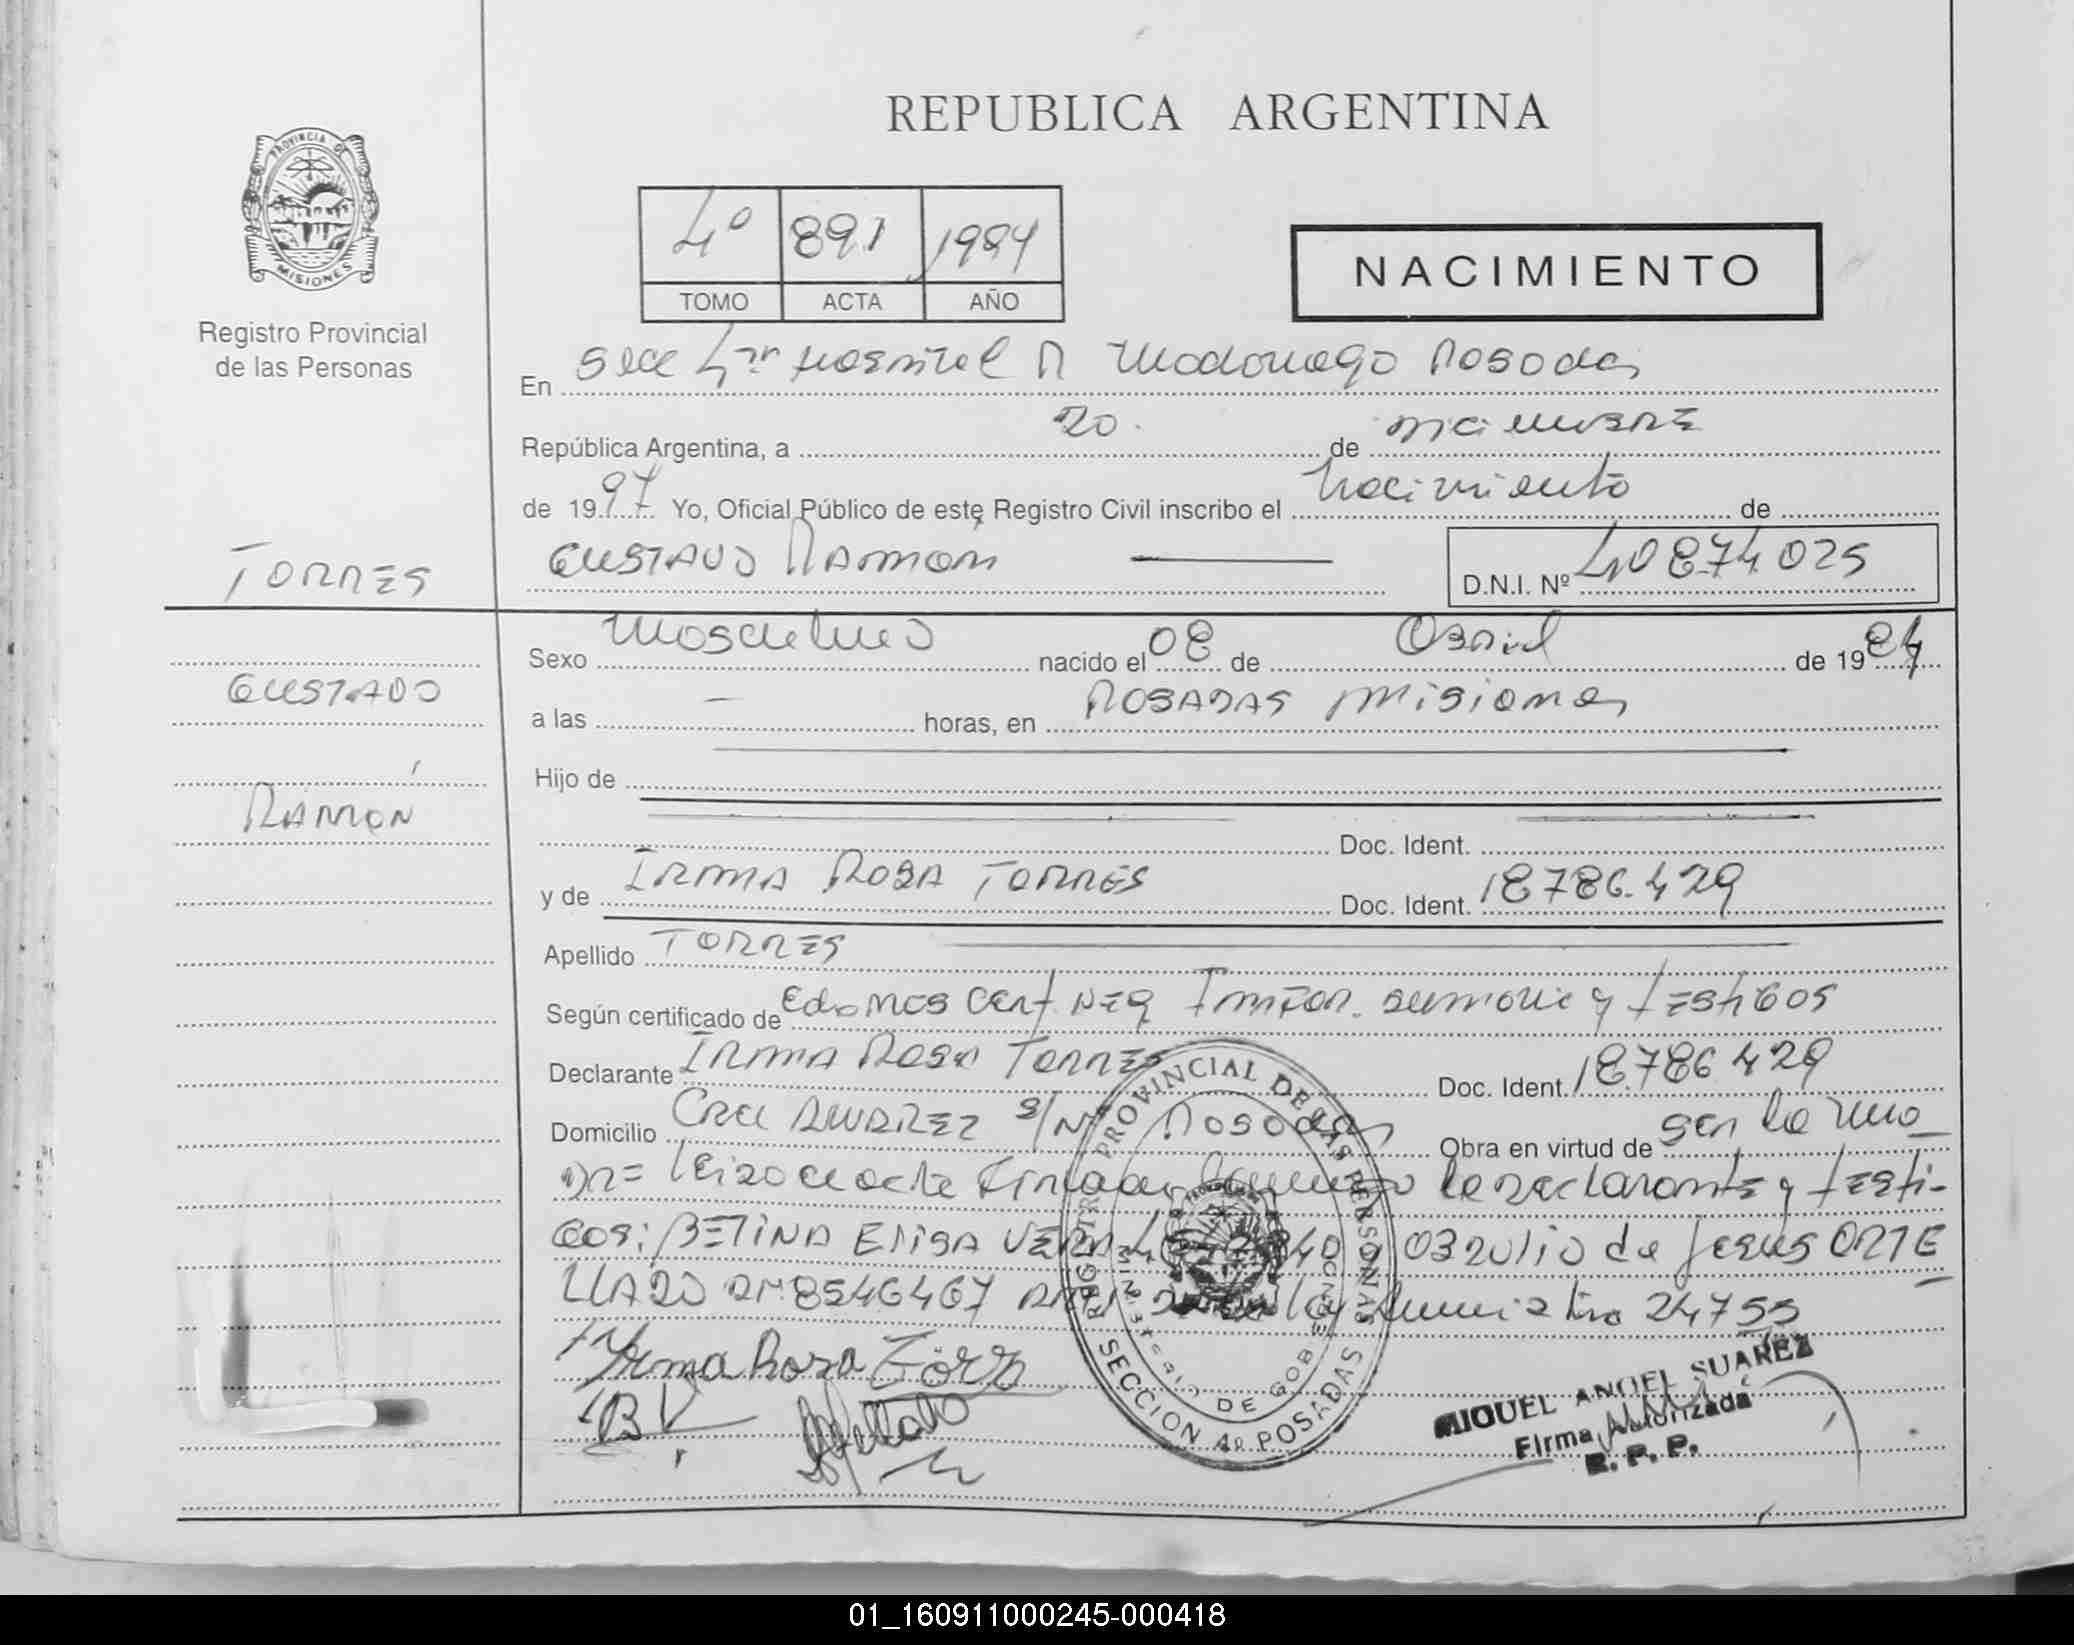 REPUBLICA ARGENTINA
PROVINCIA DE
MISIONES
Registro Provincial
de las Personas
4º 891 1984
TOMO ACTA AÑO
NACIMIENTO
En Secc 4ta Hospital R Madariaga Posadas
República Argentina, a 20 de Diciembre
de 1997 Yo, Oficial Público de este Registro Civil inscribo el Nacimiento de
GUSTAVO RAMON
D.N.I. Nº 40874025
TORRES
GUSTAVO
RAMÓN
Sexo Masculino nacido el 08 de Abril de 1984
a las — horas, en POSADAS Misiones
Hijo de
Doc. Ident.
y de IRMA ROSA TORRES Doc. Ident. 18786.429
Apellido TORRES
Según certificado de Edo Mcs Cert. Neg sumaria y testigos
Declarante IRMA ROSA TORRES Doc. Ident. 18786429
Domicilio ALVAREZ S/Nº Posadas Obra en virtud de ser la ma
dre la declarante y testi-
gos: BETINA ELISA VERA Julio de Jesus ORTE
LLADO DNI 8546467 24755
Irma Rosa Torre
BV
REGISTRO PROVINCIAL DE LAS PERSONAS
MINISTERIO DE GOBIERNO
SECCION 4a POSADAS
MIGUEL ANGEL SUAREZ
Firma Autorizada
R. P. P.
01_160911000245-000418